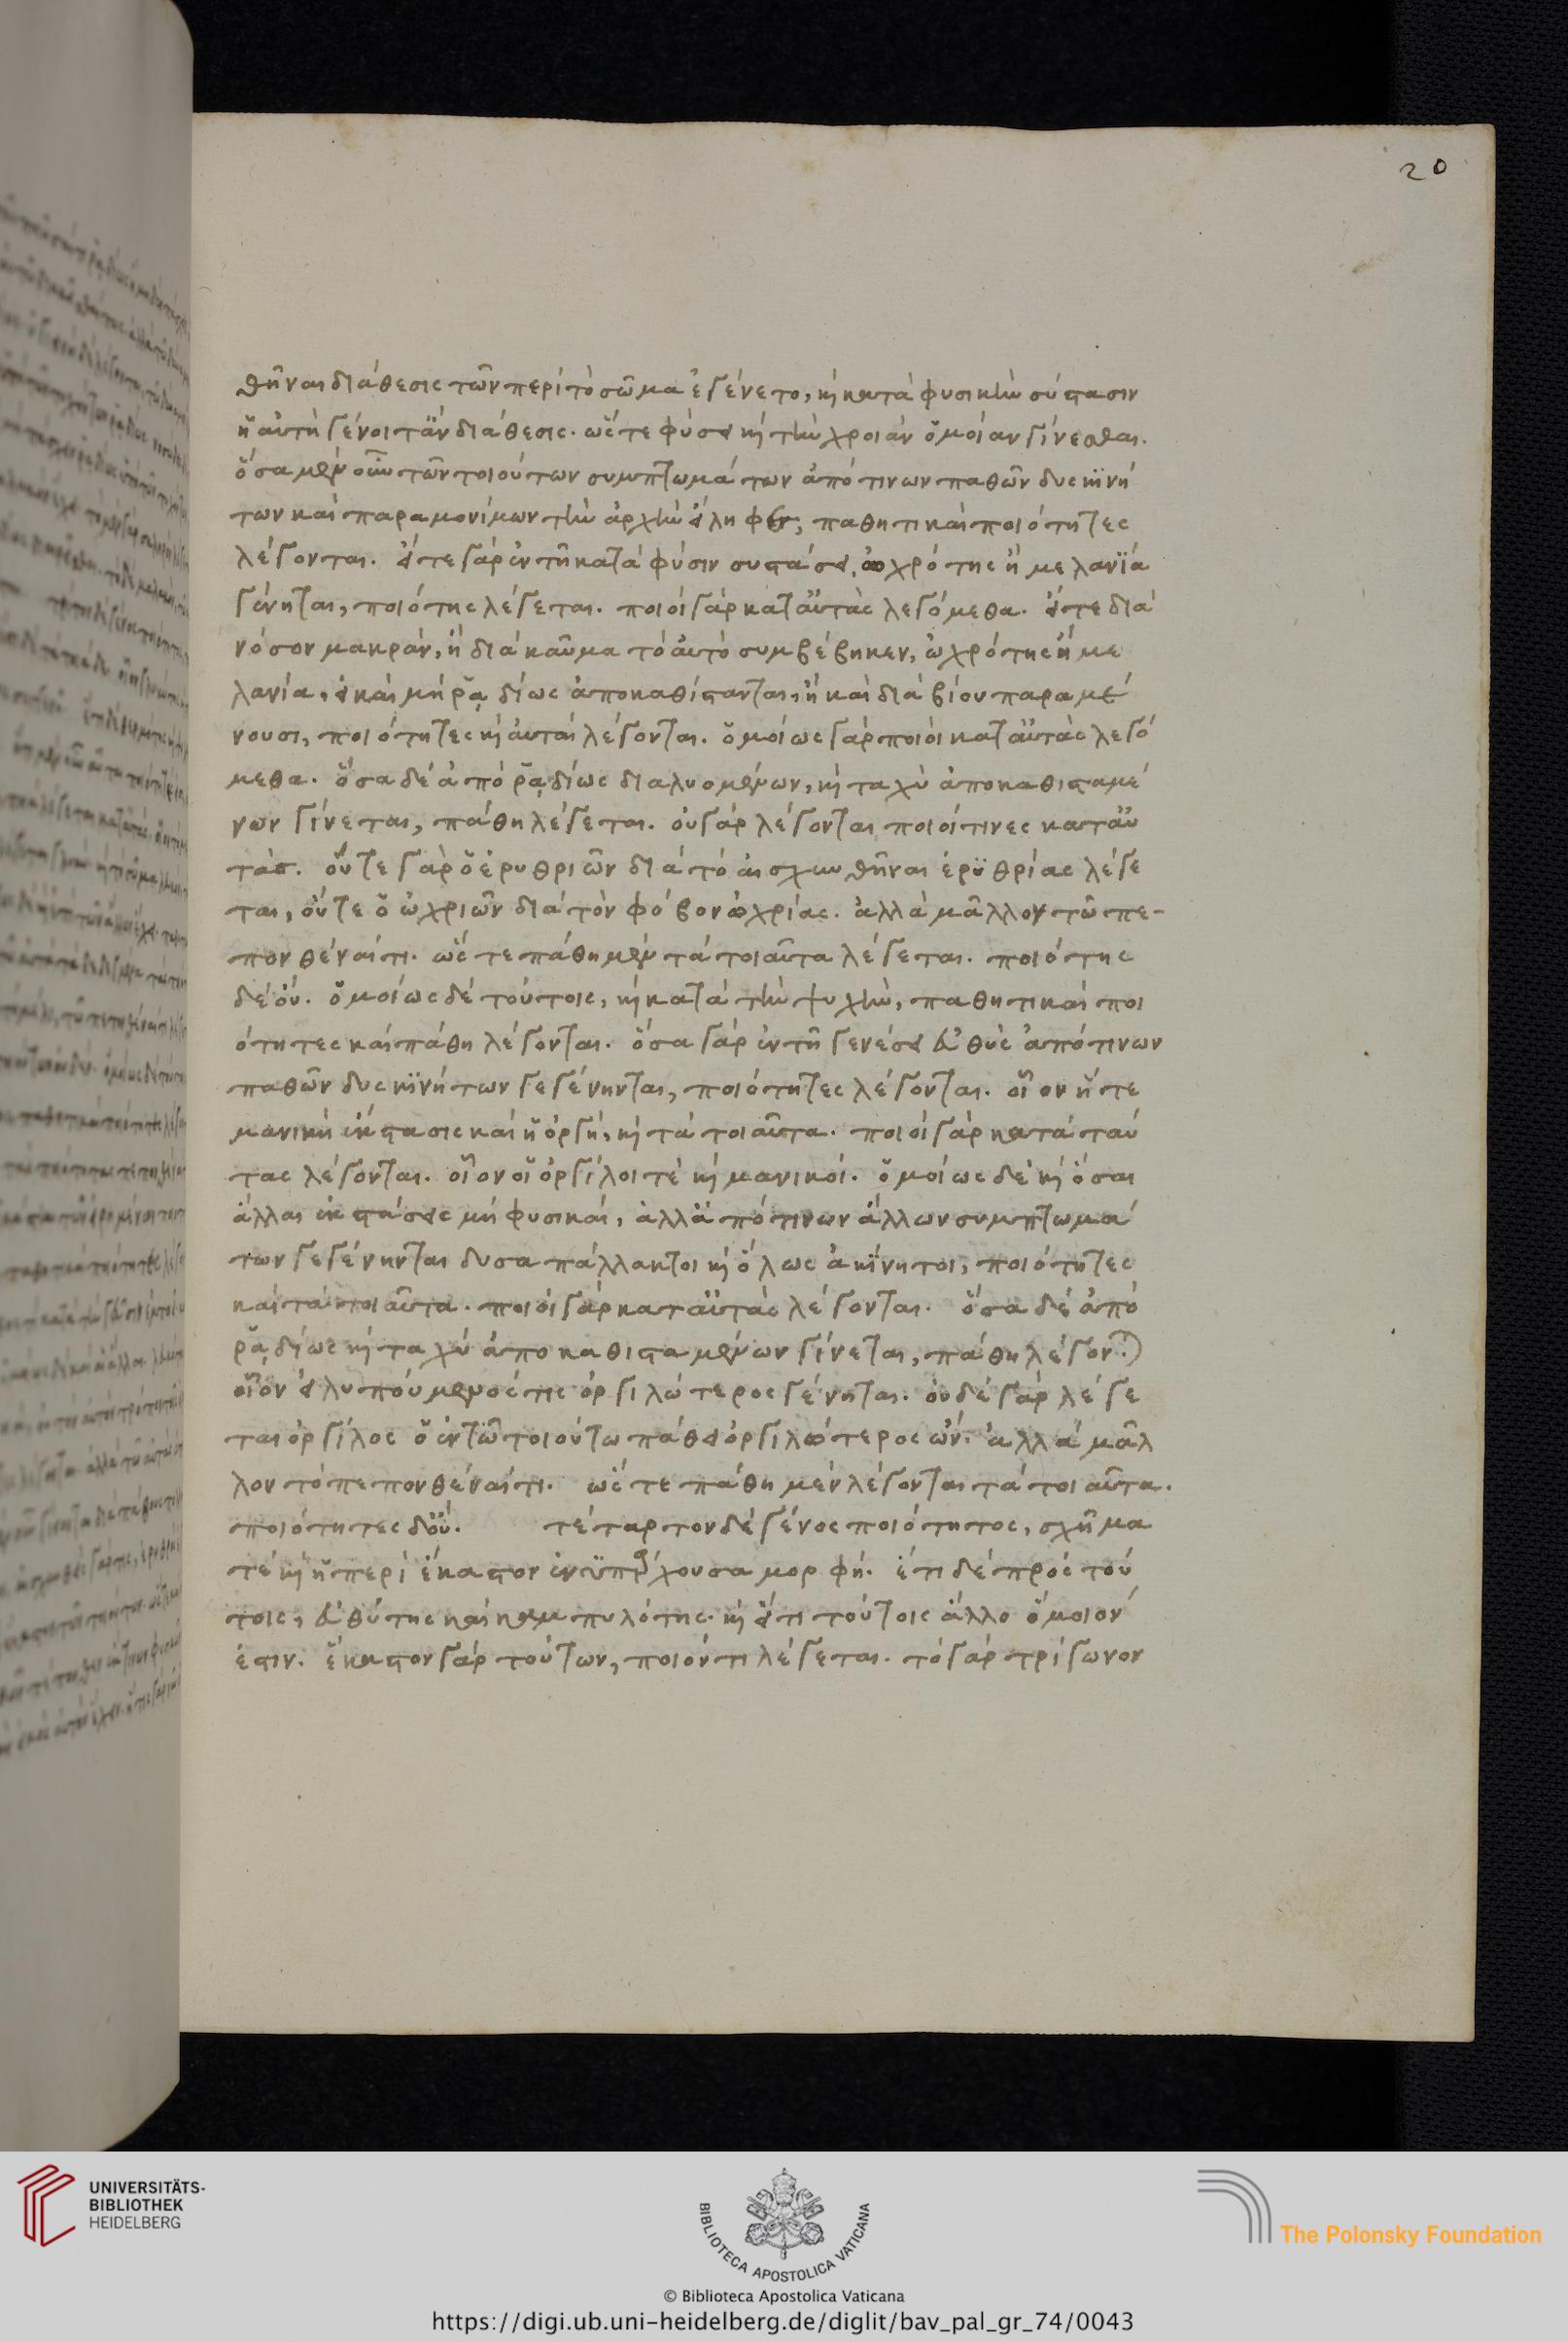 20
θῆναι διάθεσις τῶν περὶ τὸ σῶμα ἐγένετο, κὶ κατὰ φυσικὴν σύστασιν
ἡ αὐτὴ γένοιτ' ἂν διάθεσις. ὥστε φύσει κὶ τὴν χροιὰν ὁμοίαν γίνεσθαι.
ὅσα μὲν οὖν τῶν τοιούτων συμπτωμάτων ἀπό τινων παθῶν δυσκινή
των καὶ παραμονίμων τὴν ἀρχὴν εἴληφεν, παθητικαὶ ποιότητες
λέγονται. εἴτε γὰρ ἐν τῇ κατὰ φύσιν συστάσει, ὠχρότης ἢ μελανία
γένηται, ποιότης λέγεται. ποιοὶ γὰρ κατ' αὐτὰς λεγόμεθα. εἴτε διὰ
νόσον μακρὰν, ἢ διὰ καῦμα τὸ αὐτὸ συμβέβηκεν, ὠχρότης ἢ με
λανία, εἰ καὶ μὴ ῥᾳδίως ἀποκαθίστανται, ἢ καὶ διὰ βίου παραμέ
νουσι, ποιότητες κὶ αὐταὶ λέγονται. ὁμοίως γὰρ ποιοὶ κατ' αὐτὰς λεγό
μεθα. ὅσα δὲ ἀπὸ ῥᾳδίως διαλυομένων, κὶ ταχὺ ἀποκαθισταμέ
νων γίνεται, πάθη λέγεται. οὐ γὰρ λέγονται ποιοί τινες κατ' αὐ
τάς. οὔτε γὰρ ὁ ἐρυθριῶν διὰ τὸ αἰσχυνθῆναι ἐρυθρίας λέγε
ται, οὔτε ὁ ὠχριῶν διὰ τὸν φόβον ὠχρίας. ἀλλὰ μᾶλλον τῶ πε-
πονθέναί τι. ὥστε πάθη μὲν τὰ τοιαῦτα λέγεται. ποιότης
δὲ οὔ. ὁμοίως δὲ τούτοις, κὶ κατὰ τὴν ψυχὴν, παθητικαὶ ποι
ότητες καὶ πάθη λέγονται. ὅσα γὰρ ἐν τῇ γενέσει εὐθὺς ἀπό τινων
παθῶν δυσκινήτων γεγένηνται, ποιότητες λέγονται. οἷον ἥ τε
μανικὴ ἔκστασις καὶ ἡ ὀργὴ, κὶ τὰ τοιαῦτα. ποιοὶ γὰρ κατὰ ταύ
τας λέγονται. οἷον οἱ ὀργίλοι τὲ κὶ μανικοί. ὁμοίως δὲ κὶ ὅσαι
ἄλλαι ἐκστάσεις μὴ φυσικαὶ, ἀλλ' ἀπό τινων ἄλλων συμπτωμά
των γεγένηνται δυσαπάλλακτοι κὶ ὅλως ἀκίνητοι, ποιότητες
καὶ τὰ τοιαῦτα. ποιοὶ γὰρ κατ' αὐτὰς λέγονται. ὅσα δὲ ἀπὸ
ῥᾳδίως κὶ ταχὺ ἀποκαθισταμένων γίνεται, πάθη λέγονται
οἷον εἰ λυπούμενός τις ὀργιλώτερος γένηται. οὐδὲ γὰρ λέγε
ται ὀργίλος ὁ ἐν τῶ τοιούτω πάθει ὀργιλώτερος ὤν. ἀλλὰ μᾶλ
λον τὸ πεπονθέναί τι. ὥστε πάθη μὲν λέγονται τὰ τοιαῦτα.
ποιότητες δ' οὔ. τέταρτον δὲ γένος ποιότητος, σχῆμα
τὲ κὶ ἡ περὶ ἕκαστον ἐνυπάρχουσα μορφή. ἔτι δὲ πρὸς τού
τοις, εὐθύτης καὶ καμπυλότης. κὶ εἴ τι τούτοις ἄλλο ὅμοιόν
ἐστιν. ἕκαστον γὰρ τούτων, ποιόν τι λέγεται. τὸ γὰρ τρίγωνον
UNIVERSITÄTS-
BIBLIOTHEK
HEIDELBERG
BIBLIOTECA APOSTOLICA VATICANA
The Polonsky Foundation
© Biblioteca Apostolica Vaticana
https://digi.ub.uni-heidelberg.de/diglit/bav_pal_gr_74/0043